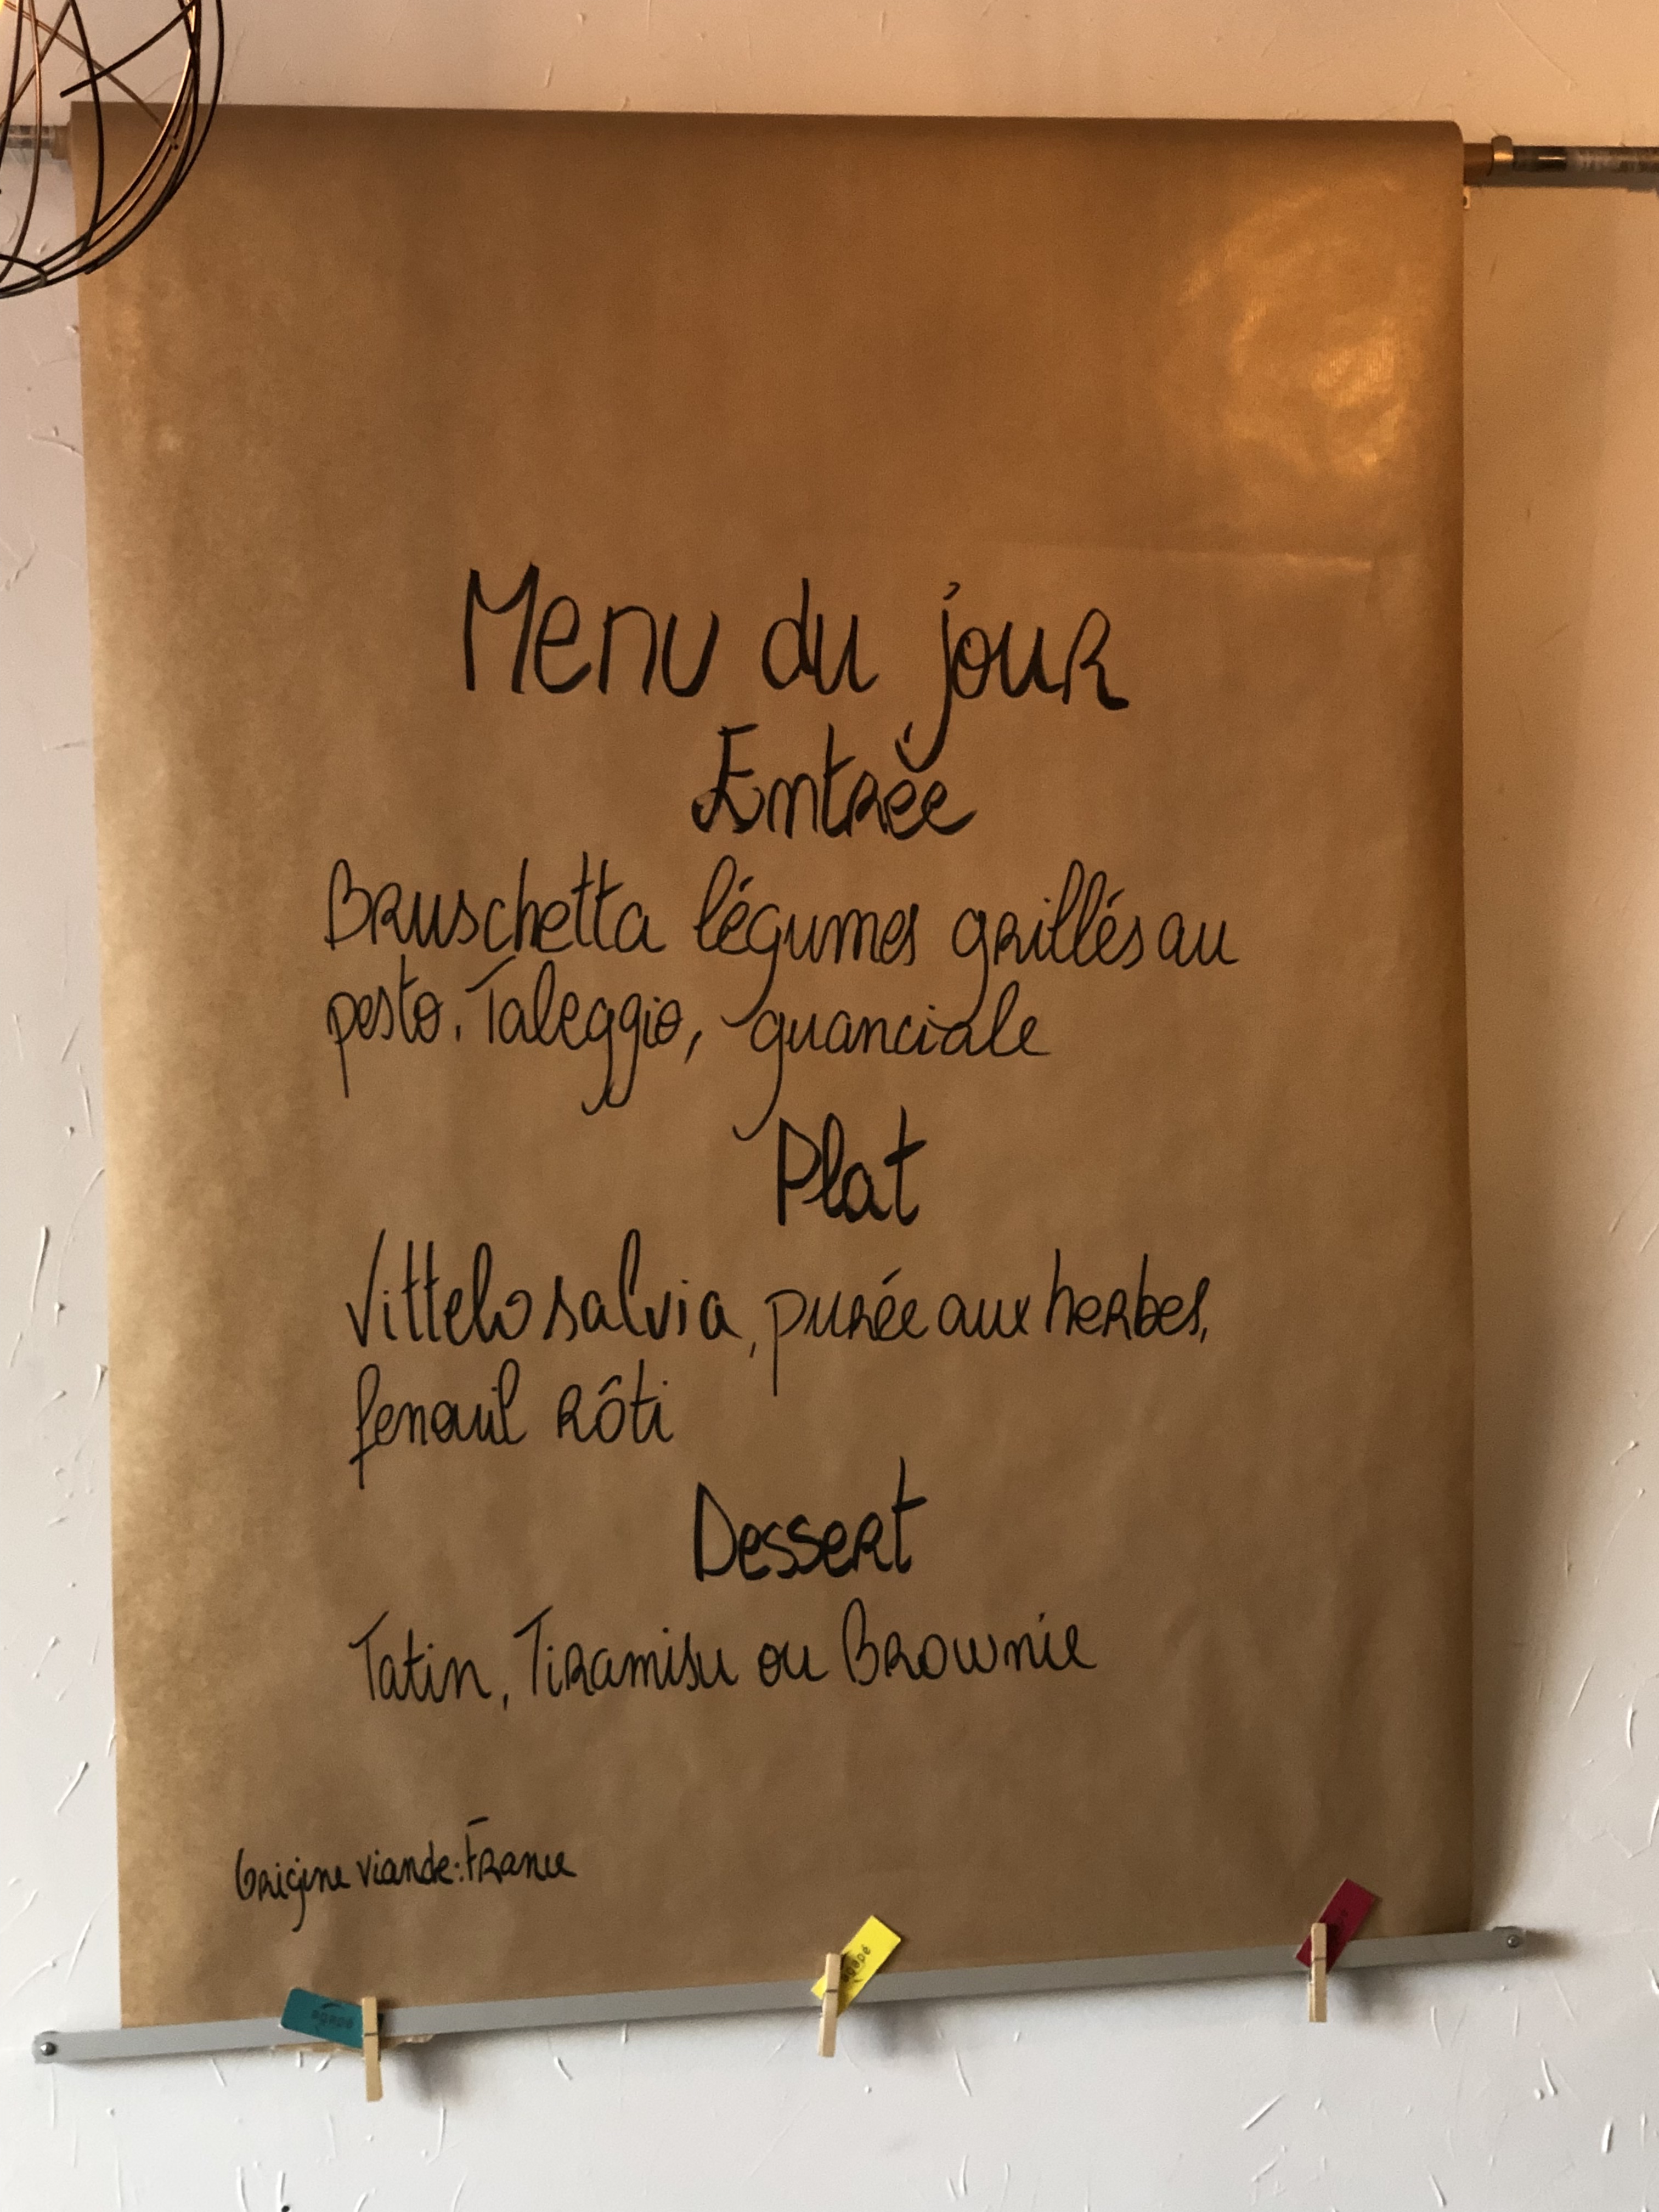 Menu du jour
Entrée
Bruschetta légumes grillés au
pesto. Taleggio, guanciale
Plat
Vittelo salvia, purée aux herbes,
fenouil rôti
Dessert
Tatin, Tiramisu ou Brownie
Origine viande: France
agapé
agapé